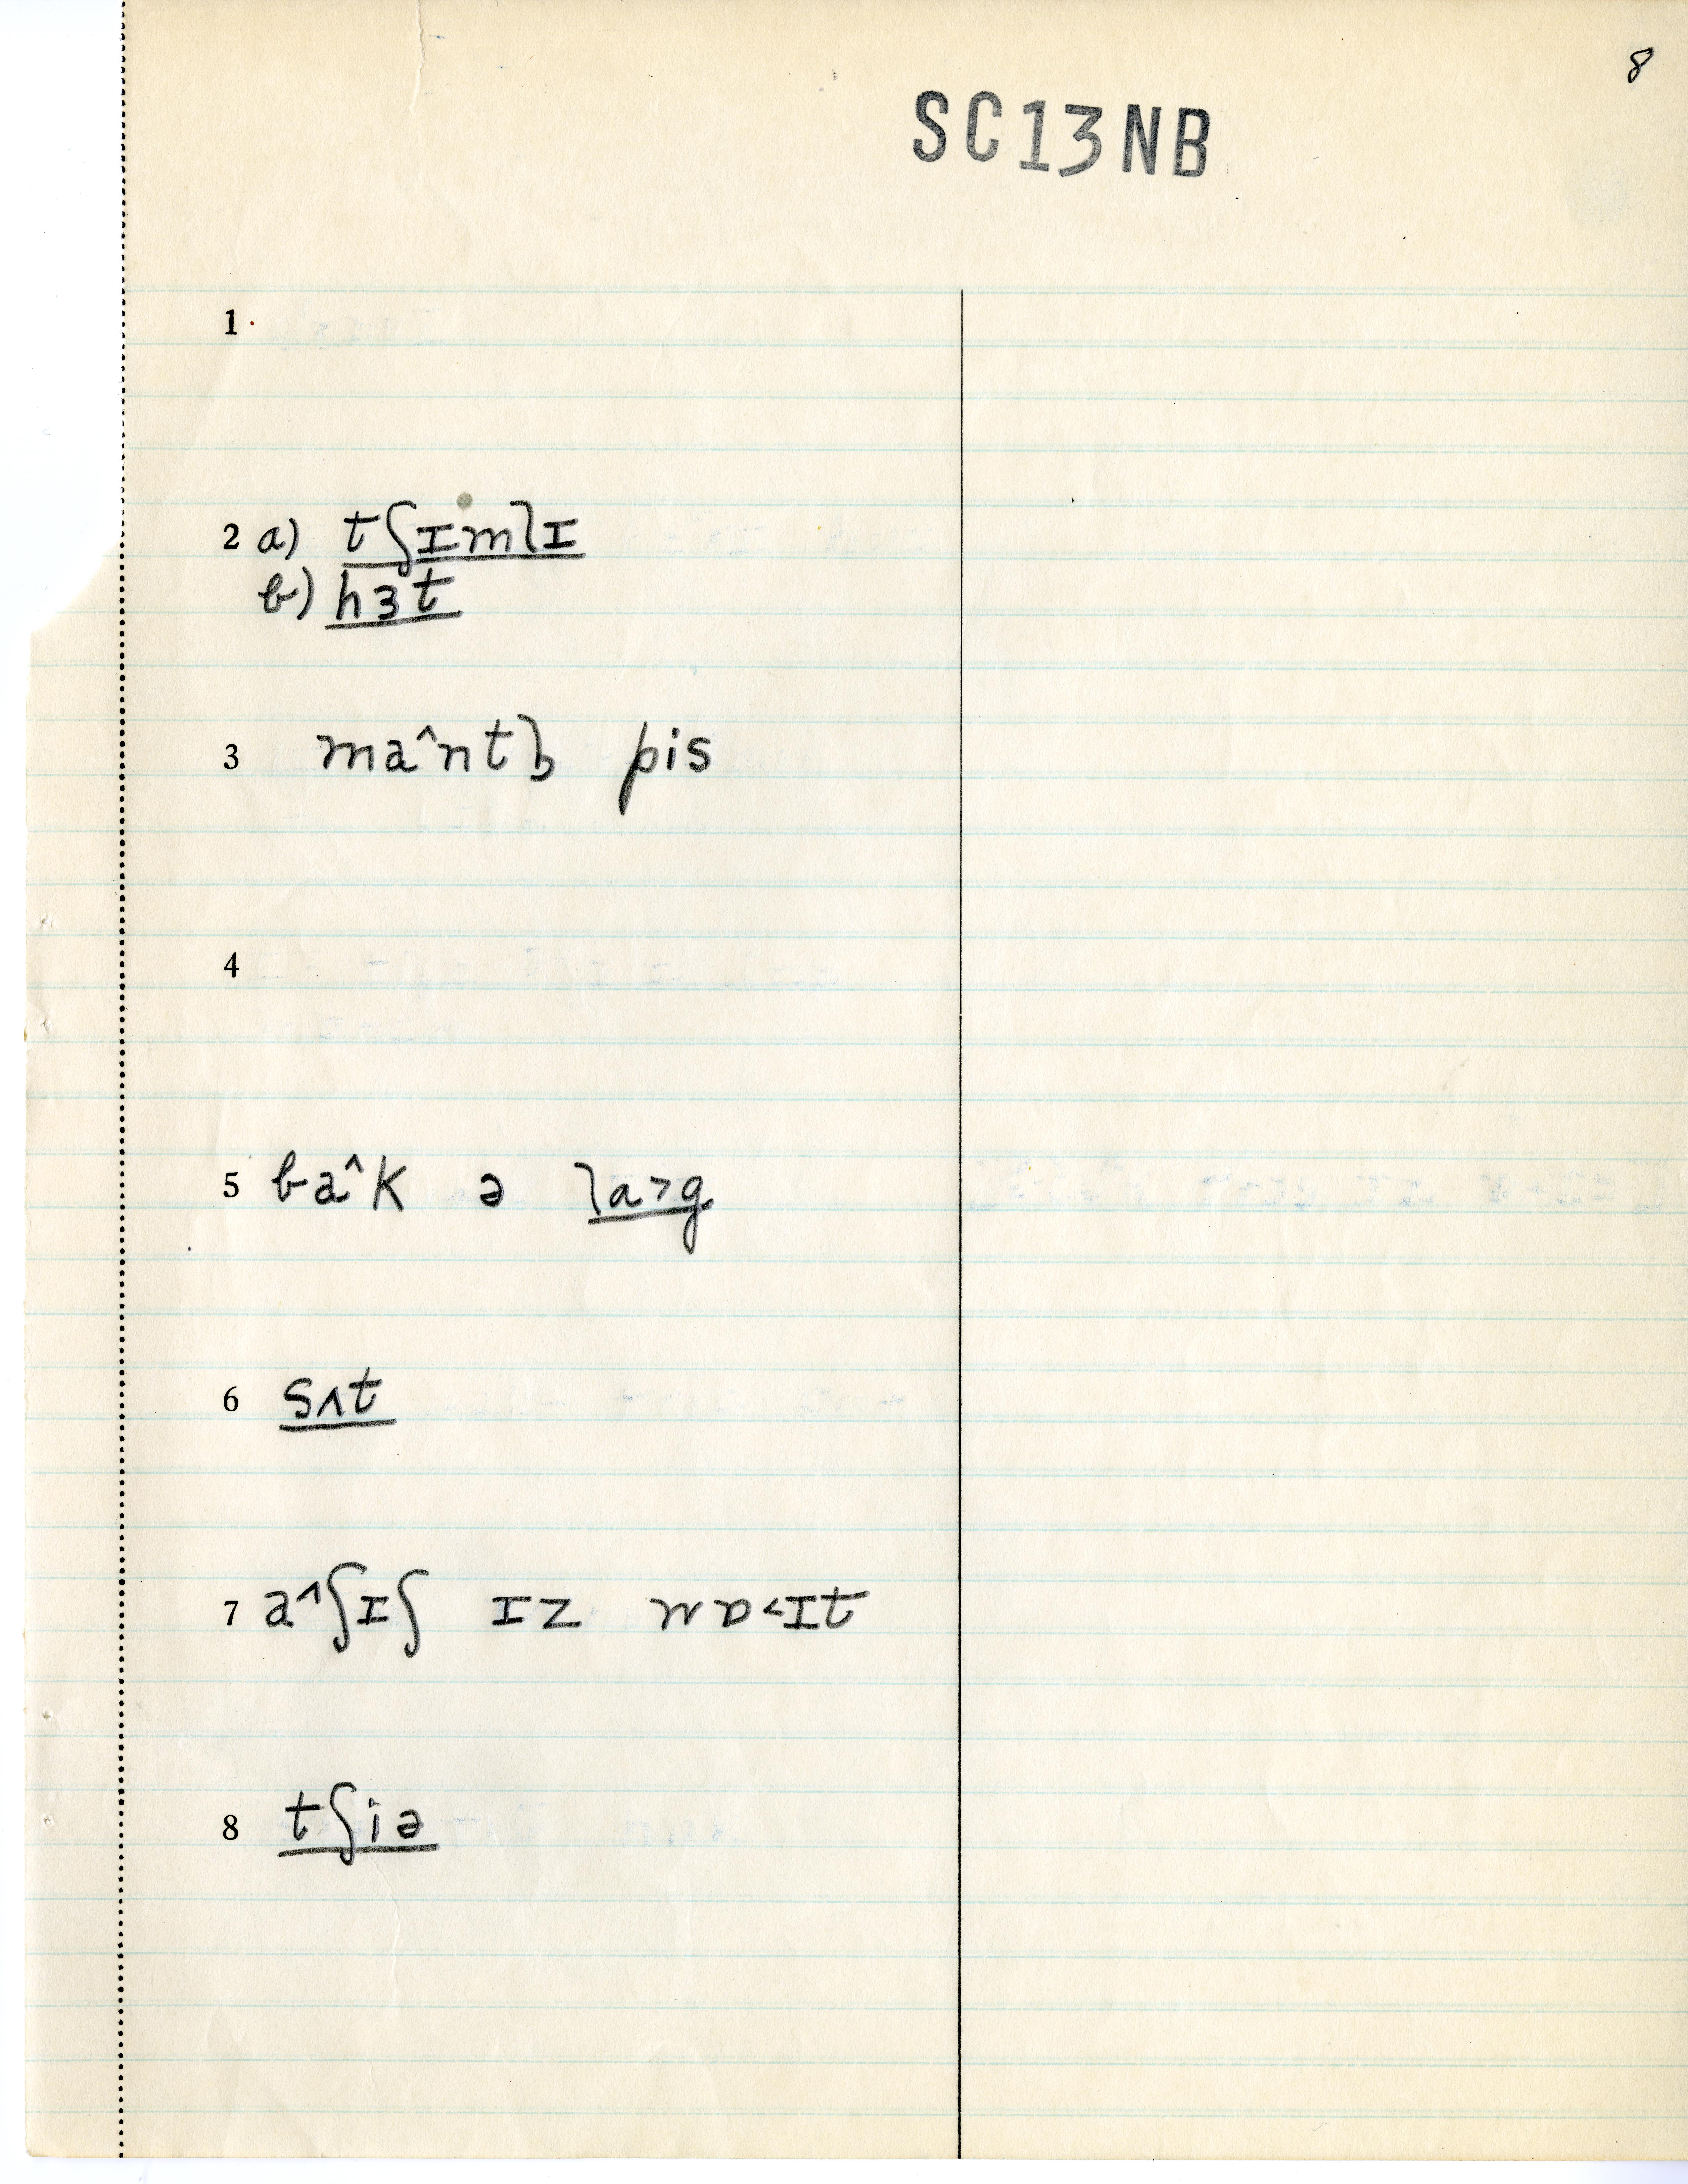 8
SC13NB
1
2 a) tʃɪmlɪ
b) hɜt
3 ma^ntl̩ pis
4
5 ba^k ə la˃g
6 sʌt
7 a^ʃɪʃ ɪz ʍɒ˂ɪt
8 tʃiə